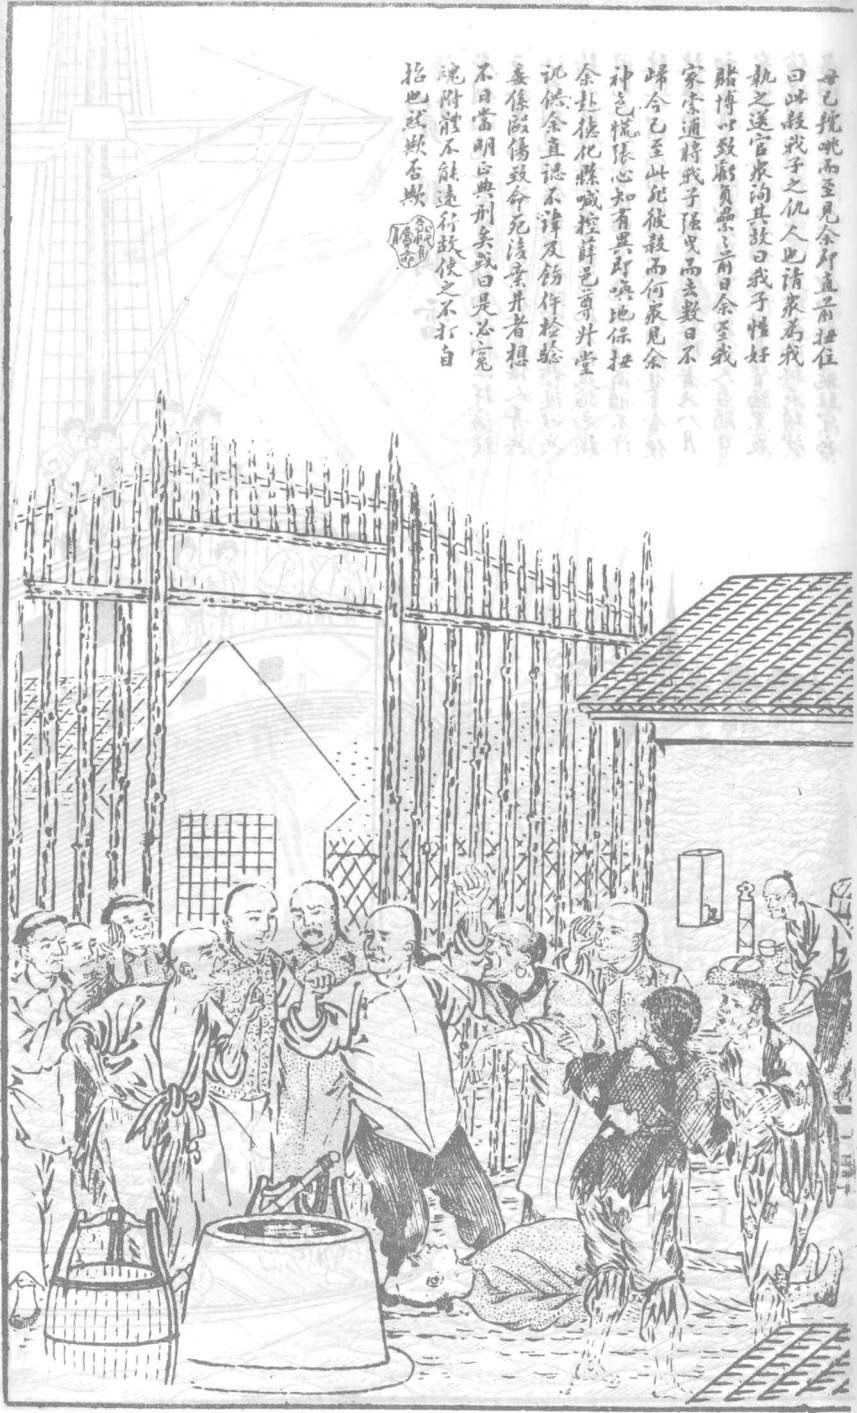 母已號咷而至見余即直前扭住
曰此殺我子之仇人也請眾為我
執之送官眾詢其故曰我子性好
賭博以致虧負纍纍前日余至我
家索逋將我子强曳而去數日不
歸今已至此非彼殺而何眾見余
神色慌張心知有異即喚地保扭
余赴德化縣喊控薛邑尊升堂
訊供余直認不諱及飭仵檢驗
委係毆傷致命死後棄井者想
不日當明正典刑矣或曰是必冤
魂附體不能遠行故使之不打自
招也然歟否歟